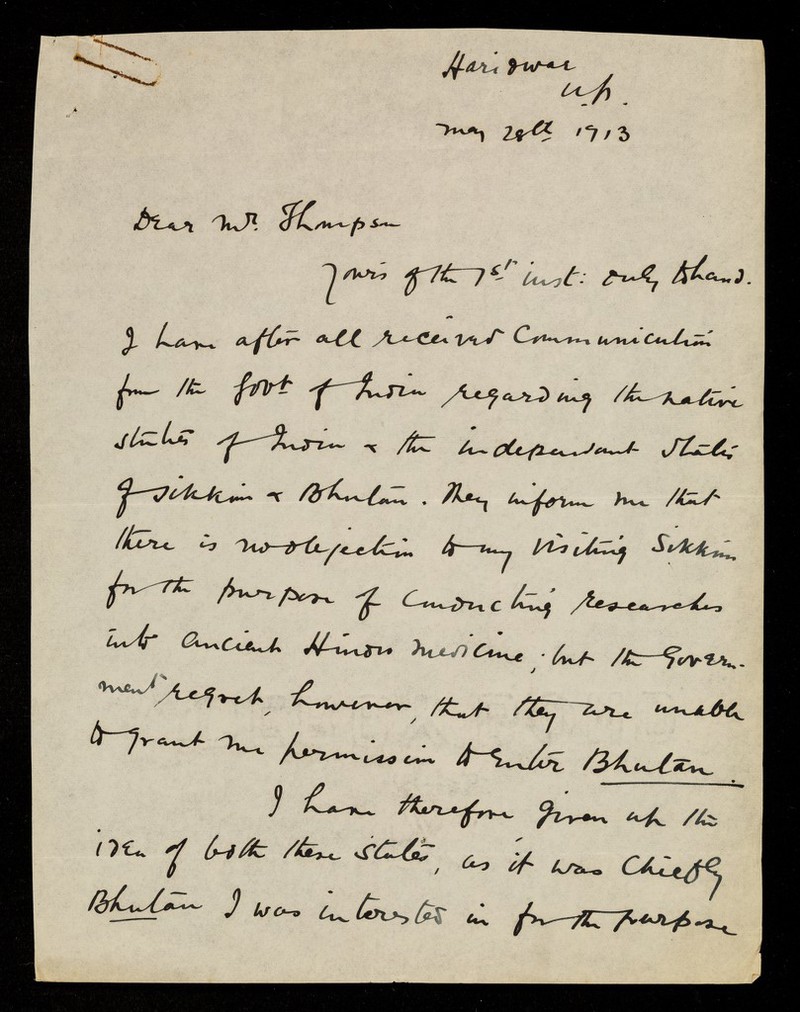 Haridwar
U.P.
May 28th 1913
Dear Mr. Thompson
Yours of the 1st inst: duly to hand.
I have after all received Communication
from the Govt of India regarding the native
states of India & the independant States
of Sikkim & Bhutan. They inform me that
there is no objection to my visiting Sikkim
for the purpose of conducting researches
into ancient Hindu medicine; but the Govern-
ment regret, however, that they are unable
to grant me permission to enter Bhutan.
I have therefore given up the
idea of both these states, as it was Chiefly
Bhutan I was interested in for the purpose